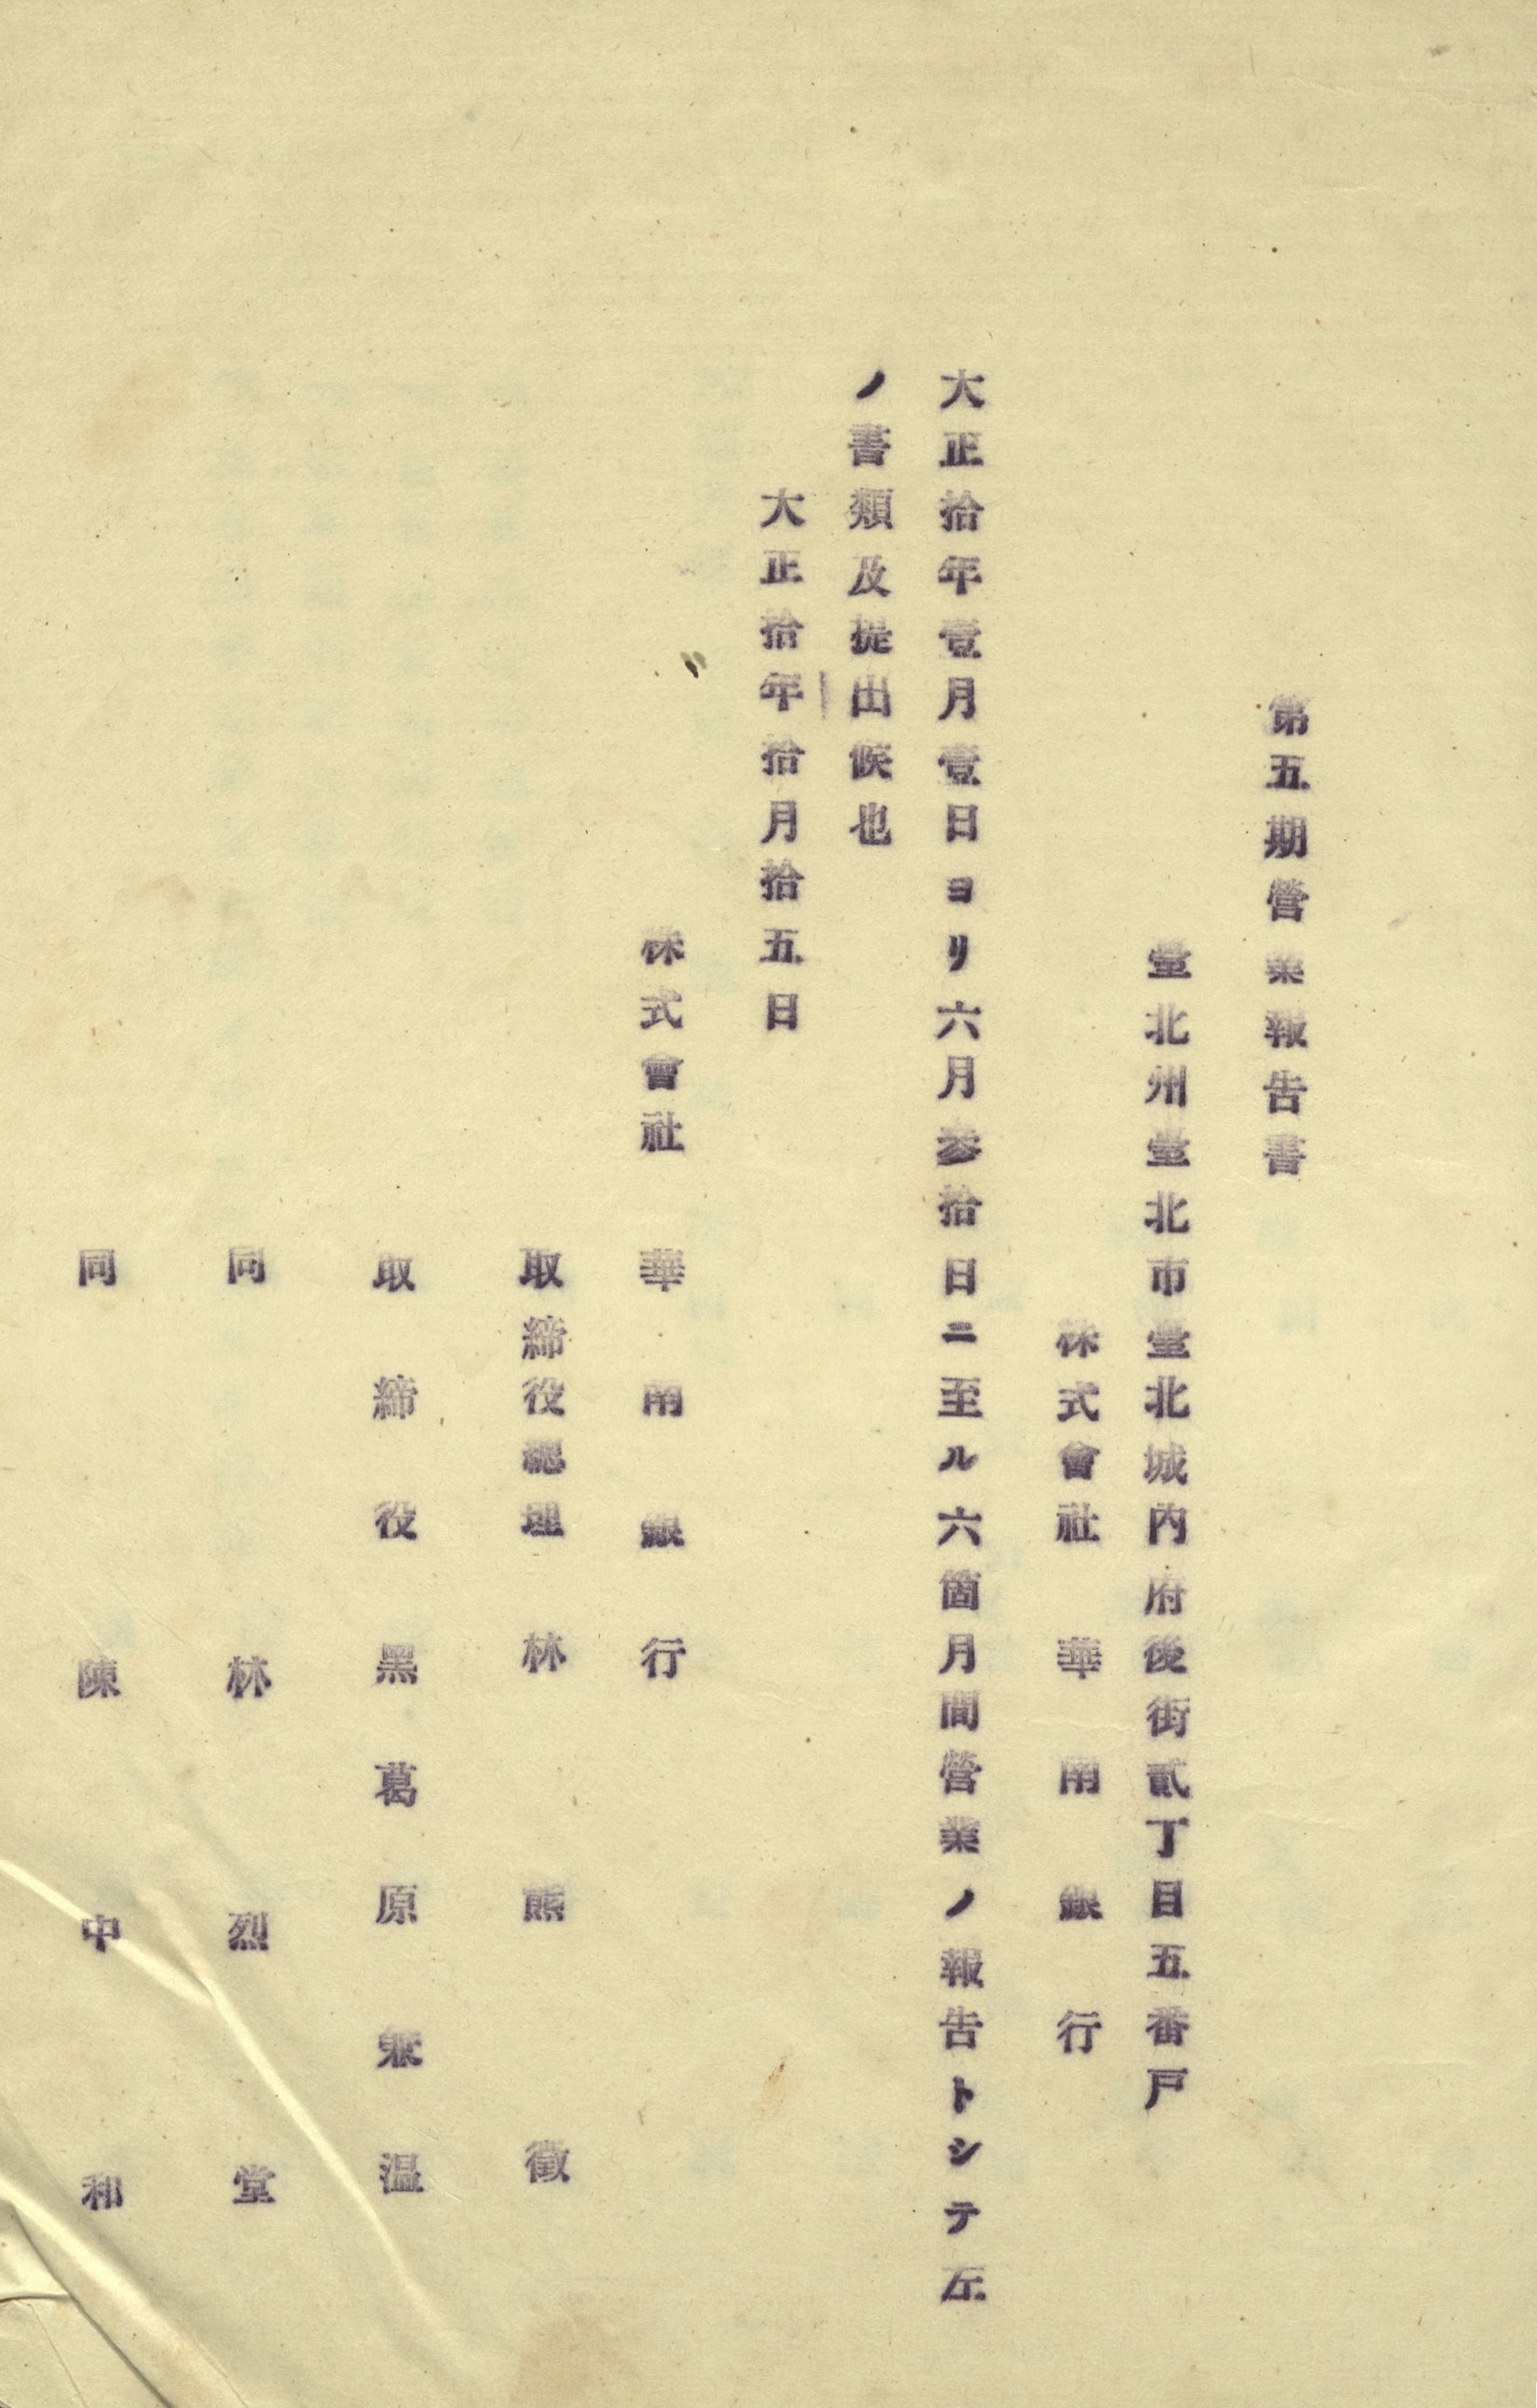 第五期營業報告書
臺北州臺北市臺北城內府後街貳丁目五番戶
株式會社 華南銀行
大正拾年壹月壹日ヨリ六月參拾日ニ至ル六箇月間營業ノ報告トシテ左
ノ書類及提出候也
大正拾年拾月拾五日
株式會社 華南銀行
取締役總理 林熊徵
取締役 黑葛原兼溫
同 林烈堂
同 陳中和